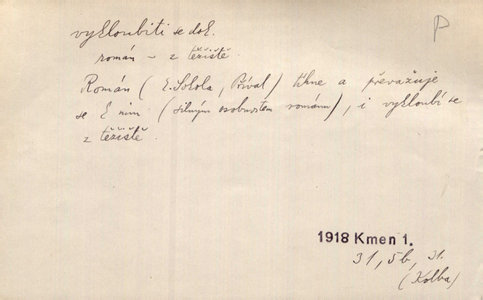 P
vykloubiti se dok.
román – z těžiště.
Román (E. Sokola, Příval) tkne a převažuje
se k nim (silným osobnostem románu), i vykloubí se
z těžiště.
1918 Kmen 1.
31, 5b, 31.
(Kolba)